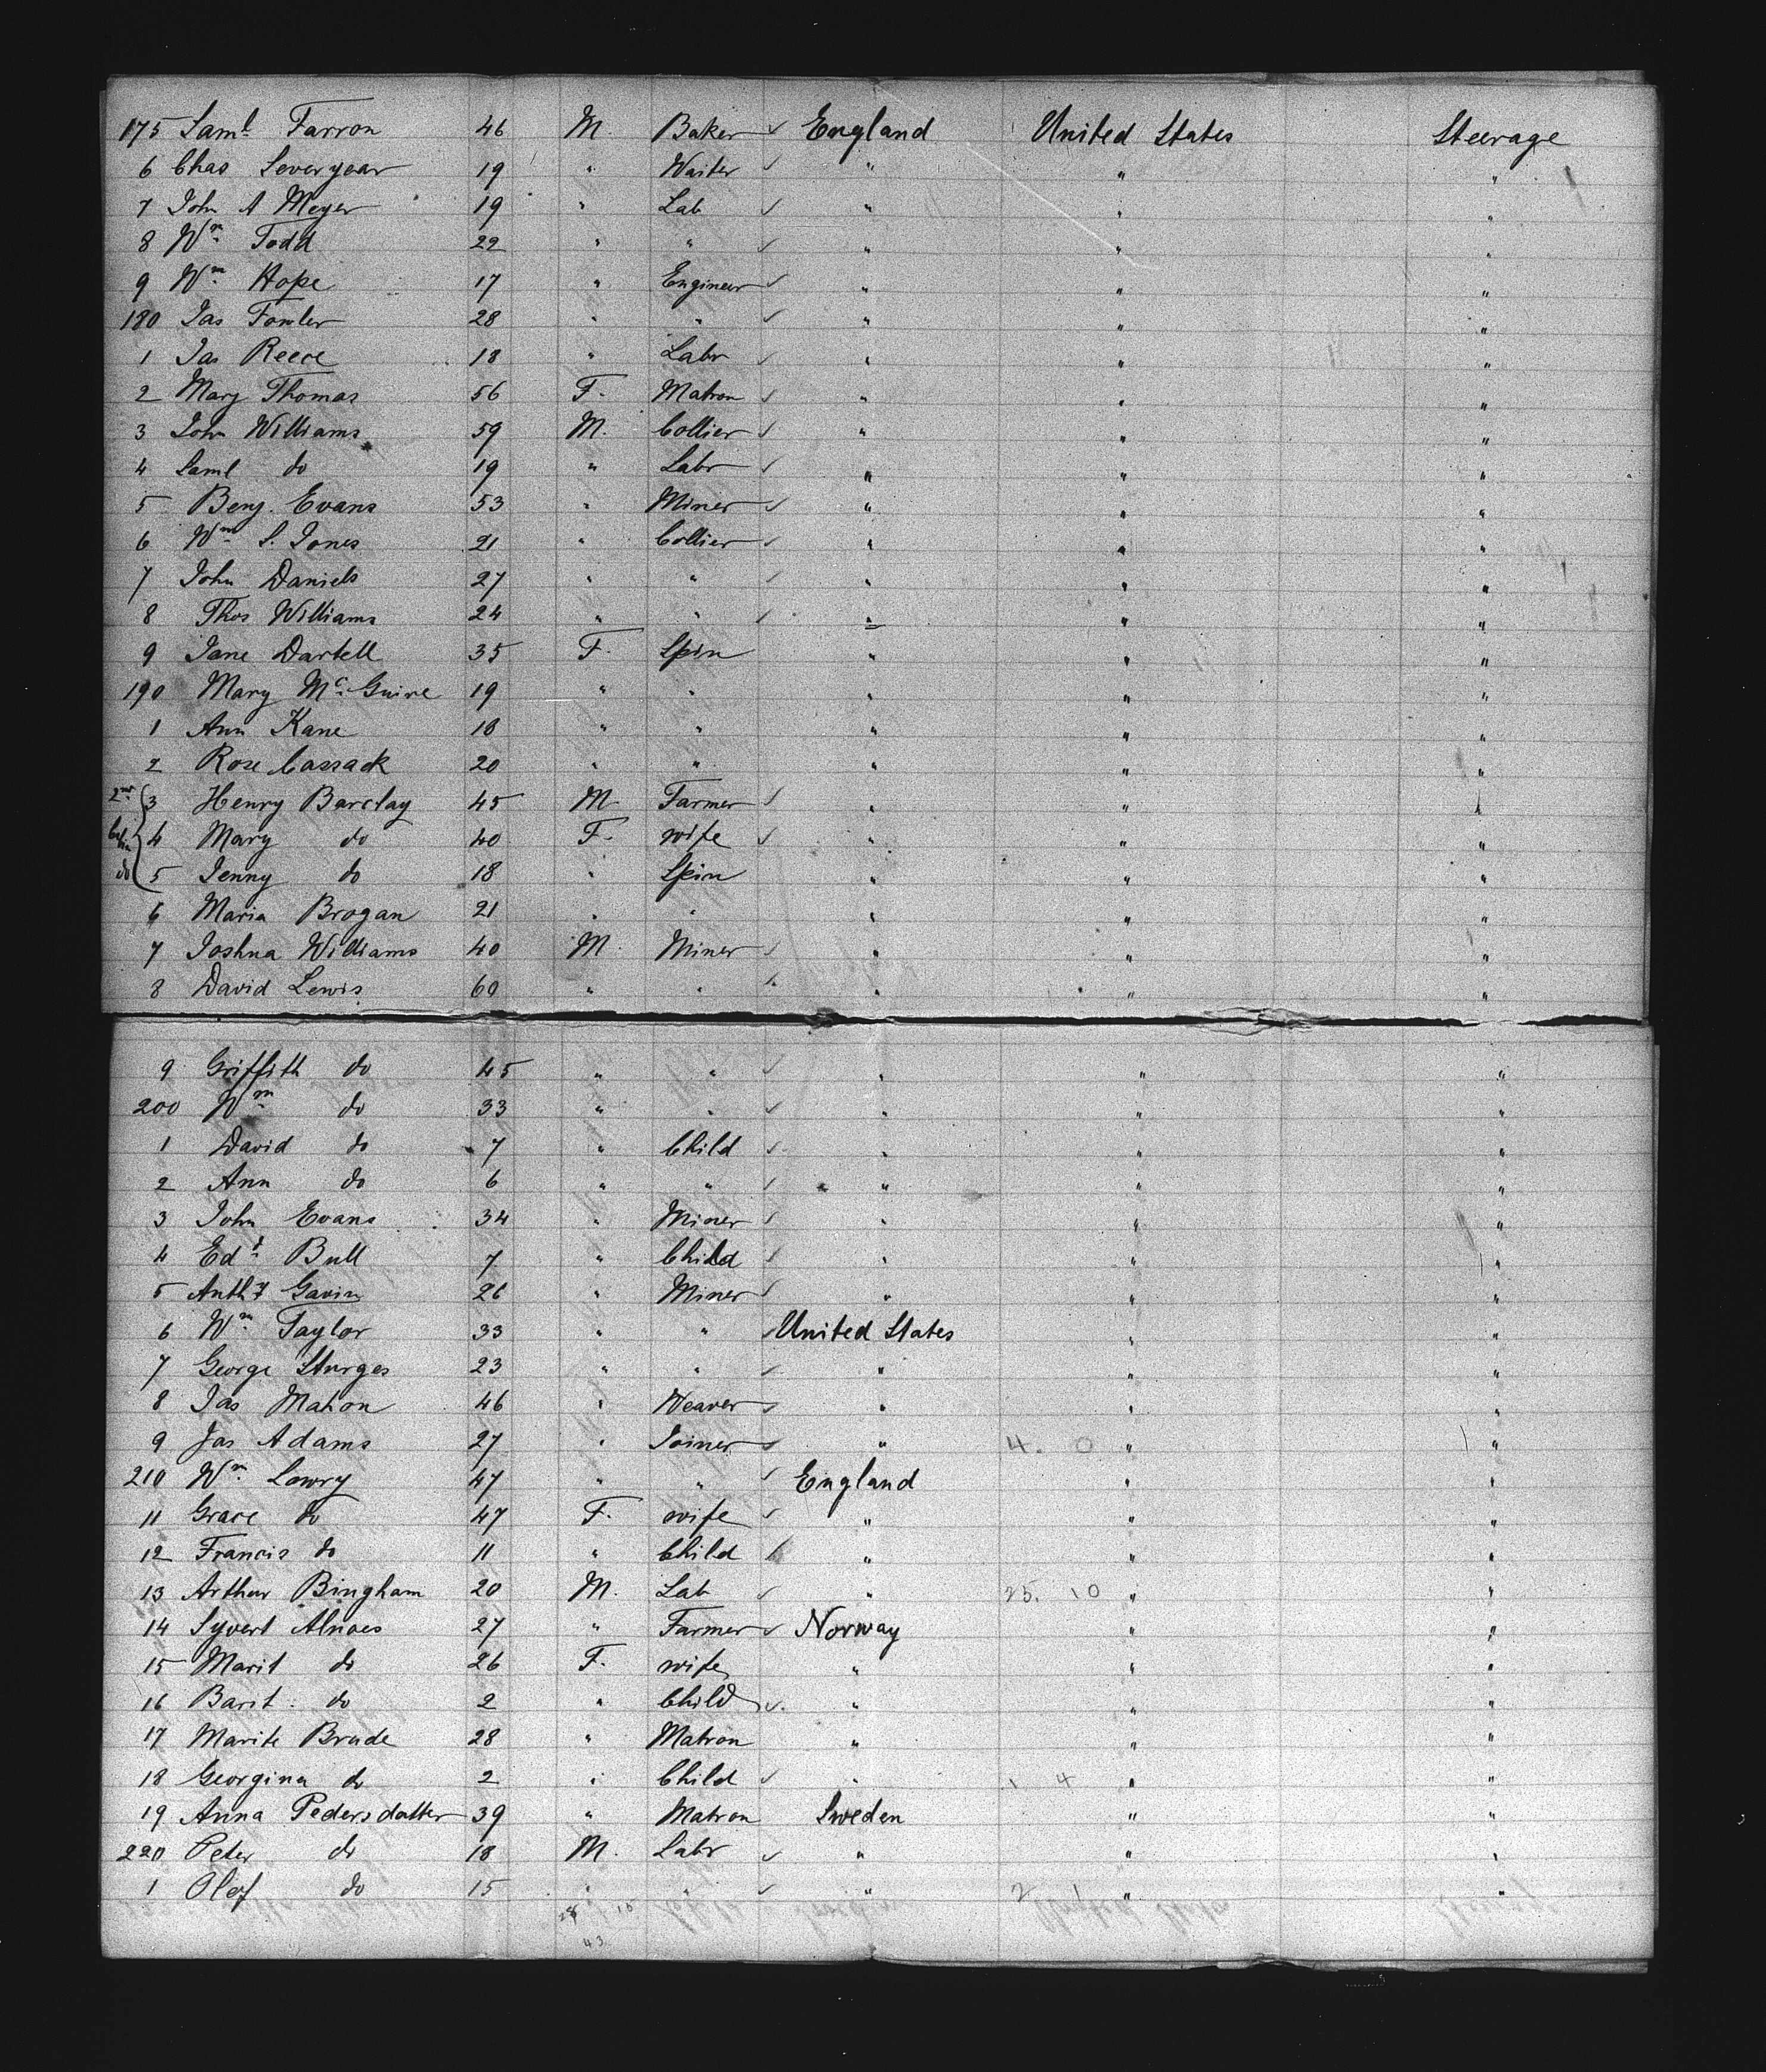 175 Saml Farron 46 M. Baker ✓ England United States Steerage
6 Chas Severyear 19 " Waiter ✓ " " "
7 John A Meyer 19 " Lab ✓ " " "
8 Wm Todd 22 " " ✓ " " "
9 Wm Hope 17 " Engineer ✓ " " "
180 Jas Fowler 28 " " ✓ " " "
1 Jas Reece 18 " Labr ✓ " " "
2 Mary Thomas 56 F. Matron ✓ " " "
3 John Williams 59 M. Collier ✓ " " "
4 Saml do 19 " Labr ✓ " " "
5 Benj. Evans 53 " Miner ✓ " " "
6 Wm S. Jones 21 " Collier ✓ " " "
7 John Daniels 27 " " ✓ " " "
8 Thos Williams 24 " " ✓ " " "
9 Jane Dartell 35 F. Spin " " "
190 Mary McGuire 19 " " " " "
1 Ann Kane 18 " " " " "
2 Rose Cassack 20 " " " " "
2nd 3 Henry Barclay 45 M Farmer ✓ " " "
Cabin 4 Mary do 40 F. wife ✓ " " "
do 5 Jenny do 18 " Spin " " "
6 Maria Brogan 21 " " " " "
7 Joshua Williams 40 M. Miner ✓ " " "
8 David Lewis 60 " " " " "
9 Griffith do 45 " " ✓ " " "
200 Wm do 33 " " ✓ " " "
1 David do 7 " Child ✓ " " "
2 Ann do 6 " " ✓ " " "
3 John Evans 34 " Miner ✓ " " "
4 Edd Bull 7 " Child ✓ " " "
5 Anthy Gavin 26 " Miner ✓ " " "
6 Wm Taylor 33 " " ✓ United States " "
7 George Sturges 23 " " ✓ " " "
8 Jas Mahon 46 " Weaver ✓ " " "
9 Jas Adams 27 " Joiner ✓ " 4. 0 " "
210 Wm Lowry 47 " " ✓ England " "
11 Grace do 47 F. wife ✓ " " "
12 Francis do 11 " Child " " "
13 Arthur Bingham 20 M. Lab ✓ " 25. 10 " "
14 Syvert Alnaes 27 " Farmer ✓ Norway " "
15 Marit do 26 F. wife " " "
16 Barit. do 2 " Child ✓ " " "
17 Marite Brude 28 " Matron " " "
18 Georgina do 2 " Child ✓ " 1 4 " "
19 Anna Pedersdatter 39 " Matron Sweden " "
220 Peter do 18 M. Labr ✓ " " "
1 Olef do 15 " " ✓ " 2 1 " "
43